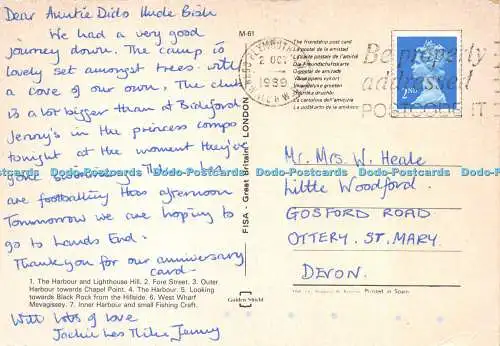 Dear Auntie Dids Uncle Bish
We had a very good
journey down. The camp is
lovely set amongst trees with
a cove of our own. The club
is a lot bigger than at Bideford
Jenny's in the princess comps
tonight at the moment they've
gone swimming. Mike + Les
are footballing this afternoon
Tommorrow we are hoping to
go to Lands End.
Thankyou for our anniversary
card.
1. The Harbour and Lighthouse Hill. 2. Fore Street. 3. Outer
Harbour towards Chapel Point. 4. The Harbour. 5. Looking
towards Black Rock from the Hillside. 6. West Wharf
Mevagissey. 7. Inner Harbour and small Fishing Craft.
With Lots of love
Jackie Les Mike Jenny
M-61
FISA - Great Britain - LONDON
Golden Shield
The friendship post card
La postal de la amistad
La carte postale de l'amitié
Die Freundschaftskarte
O postal da amizade
La cartolina dell'amicizia
PLYMOUTH
2 OCT
1989
Be properly
addressed
POSTCODE IT
2ND
Mr. Mrs. W. Heale
Little Woodford.
GOSFORD ROAD
OTTERY. ST. MARY
DEVON.
Printed in Spain
Dodo-Postcards